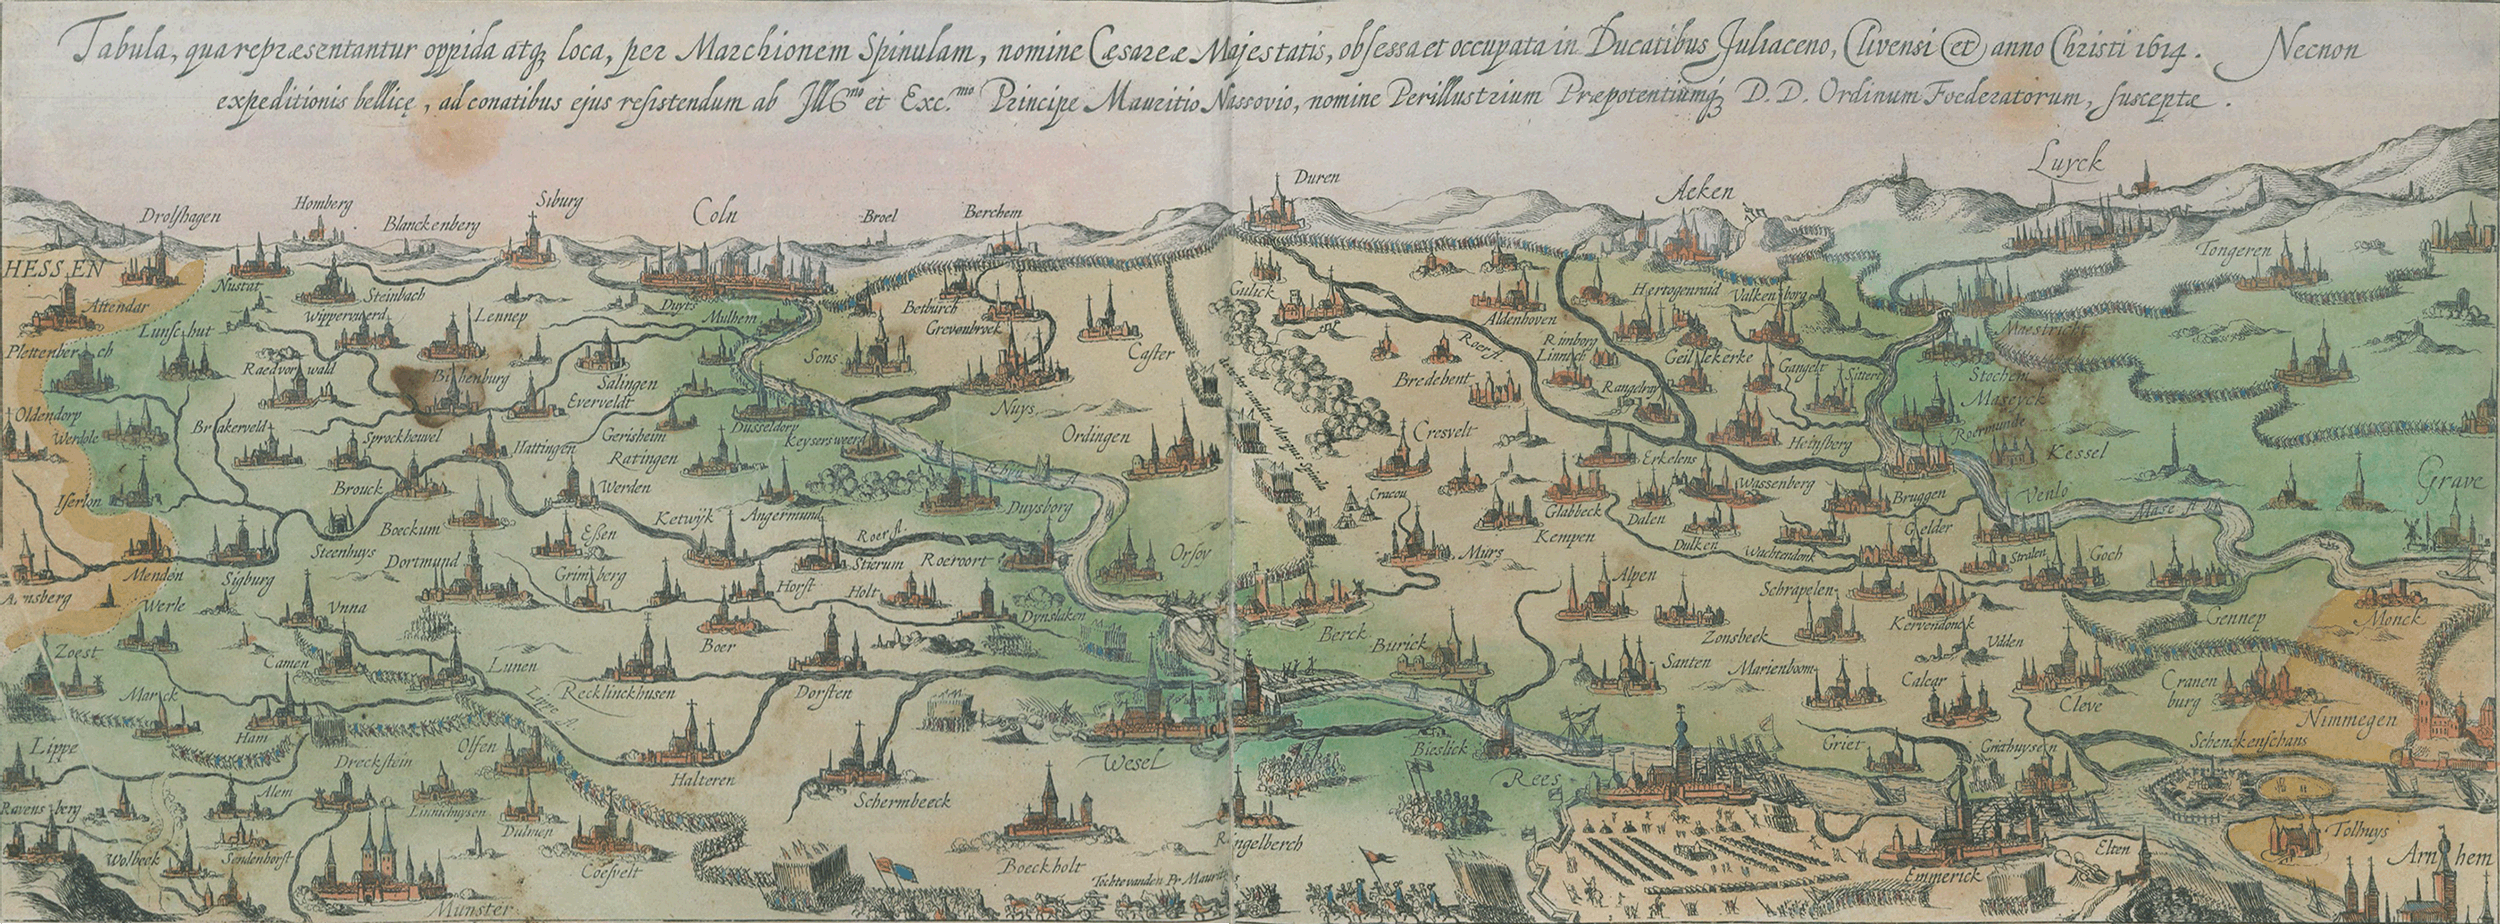 Tabula, qua repræsentantur oppida atq̨ loca, per Marchionem Spinulam, nomine Cæsareæ Majestatis, obsessa et occupata in Ducatibus Juliaceno, Clivensi et anno Christi 1614. Necnon
expeditionis bellicę, ad conatibus ejus resistendum ab Illmo et Exc.mo Principe Mauritio Nassovio, nomine Perillustrium Præpotentiumq̨ D.D. Ordinum Foederatorum, susceptæ.
Luyck
Duren
Aeken
Siburg
Homberg
Coln
Drolshagen
Blanckenberg
Broel
Berchem
Tongeren
HESSEN
Nustat
Steinbach
Attendar
Duyts
Mulhem
Beiburch
Gulick
Hertogenraid
Valkenborg
Wippervuerd
Lennep
Grevenbroek
Aldenhoven
Maestricht
Lunschut
Caster
Sons
Roer fl.
Rimborg
Linnich
Geillekerke
Plettenberch
Raedvormwald
Salingen
Bredebent
Gangelt
Sittert
Stochem
Everveldt
Rangelray
Maseyck
Oldendorp
Nuys
Werdole
Brakerveld
Sprockheuvel
Hattingen
Gerisheim
Dusseldorp
Keysersweerd
Ordingen
Cresvelt
Heinsberg
Roermunde
Kessel
Ratingen
Rhyn fl.
Erkelens
Wassenberg
Iserlon
Brouck
Werden
Angermund
Duysborg
Cracou
Glabbeck
Dalen
Bruggen
Venlo
Grave
Mase fl.
Boeckum
Ketwijk
Kempen
Dulken
Gelder
Steenhuys
Essen
Roer fl.
Stierum
Roeroort
Orsoy
Murs
Wachtendonk
Stralen
Goch
Menden
Sigburg
Dortmund
Grimberg
Horst
Holt
Alpen
Schrapelen
Arnsberg
Werle
Vnna
Dynslaken
Berck
Zonsbeek
Kervendonck
Gennep
Monck
Zoest
Camen
Lunen
Boer
Burick
Santen
Marienboom
Udden
Calcar
Cleve
Cranenburg
Marck
Lippe fl.
Recklinckhusen
Dorsten
Nimmegen
Ham
Lippe
Olfen
Wesel
Bieslick
Griet
Griethuysen
Schenckenschans
Dreckstein
Halteren
Schermbeeck
Rees
Alem
Ravensberg
Linnichuysen
Dulmen
Ringelberch
Tolhuys
Wolbeek
Sendenhorst
Coesvelt
Boeckholt
Elten
Arnhem
Tochte vanden Pr. Mauritz
Emmerick
Munster